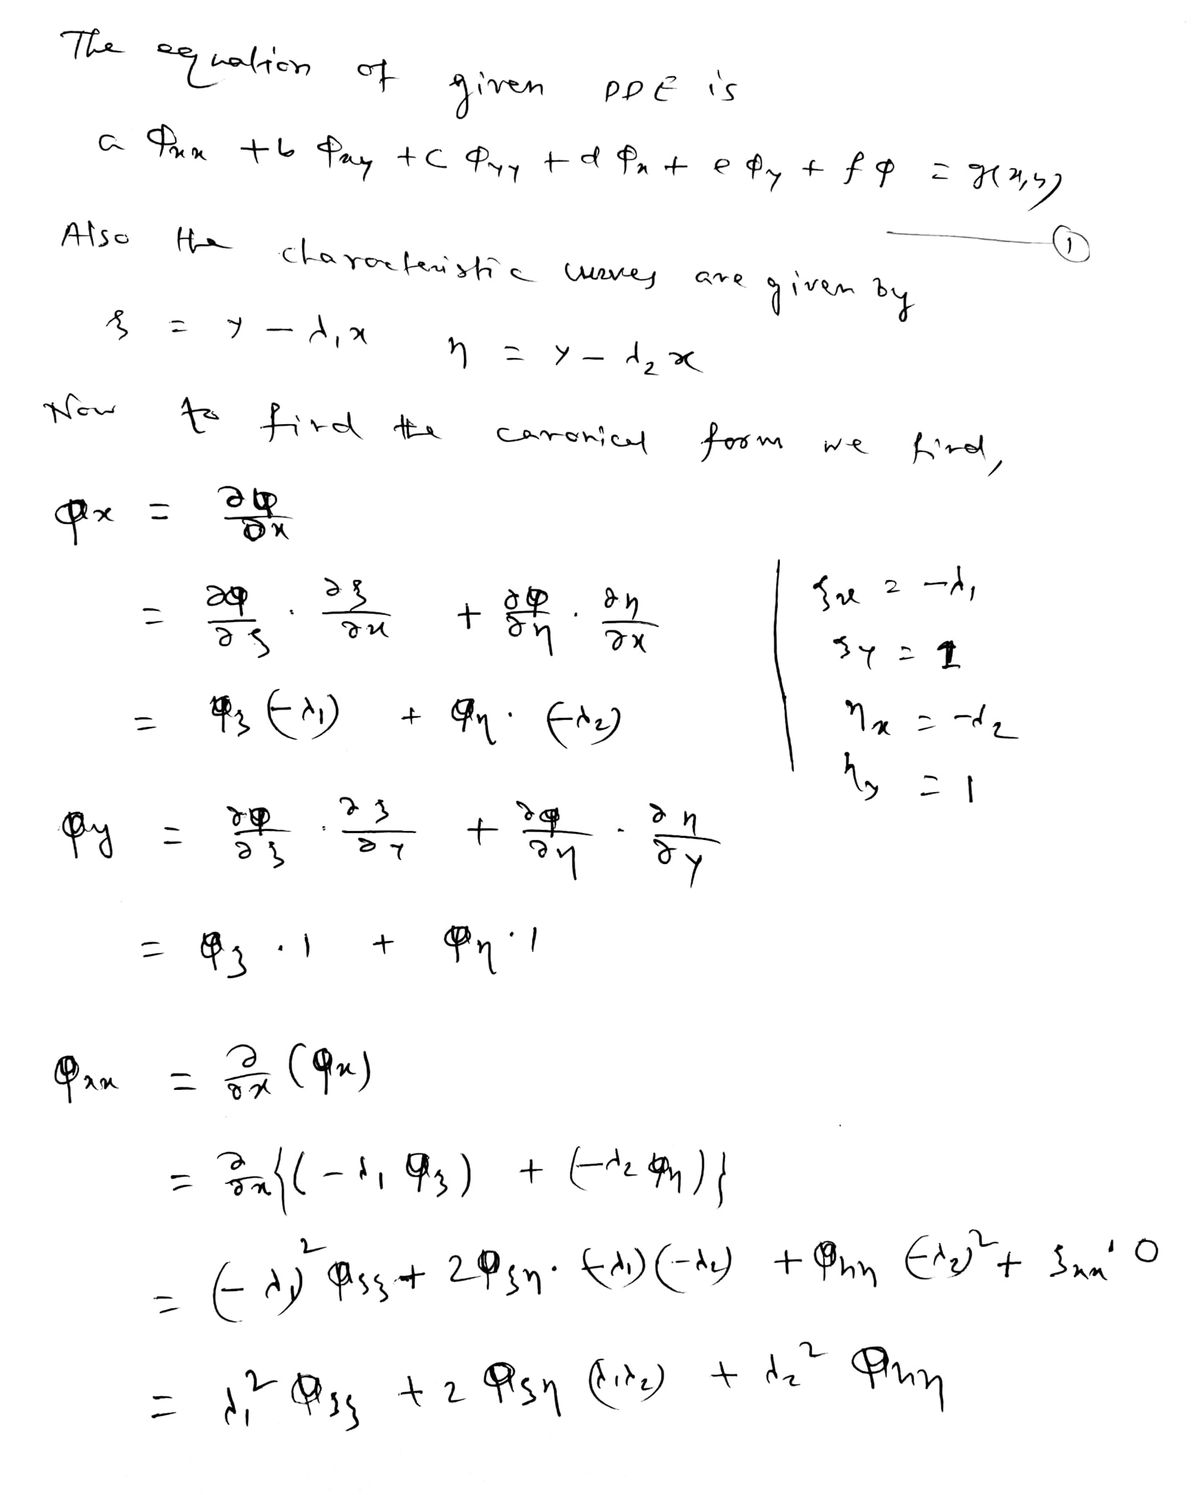 The equation of given PDE is
a φxx + b φxy + c φyy + d φx + e φy + f φ = g(x,y)
①
Also the characteristic curves are given by
ξ = y − λ₁x    η = y − λ₂x
Now to find the canonical form we find,
φx = ∂φ/∂x
= ∂φ/∂ξ · ∂ξ/∂x + ∂φ/∂η · ∂η/∂x
= φξ (−λ₁) + φη · (−λ₂)
ξx = −λ₁
ξy = 1
ηx = −λ₂
ηy = 1
φy = ∂φ/∂ξ · ∂ξ/∂y + ∂φ/∂η · ∂η/∂y
= φξ · 1 + φη · 1
φxx = ∂/∂x (φx)
= ∂/∂x {(−λ₁ φξ) + (−λ₂ φη)}
= (−λ₁)² φξξ + 2φξη · (−λ₁)(−λ₂) + φηη (−λ₂)² + ξxx · 0
= λ₁² φξξ + 2 φξη (λ₁λ₂) + λ₂² φηη